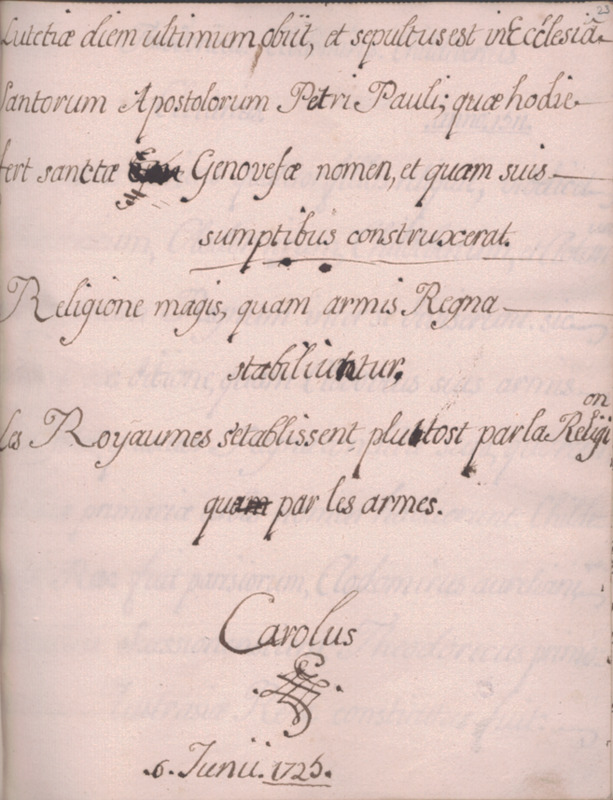 23
Lutetiæ diem ultimum obiit, et sepultus est in Ecclesiâ
Santorum Apostolorum Petri Pauli; quæ hodie
fert sanctæ Genovefæ nomen, et quam suis
sumptibus construxerat.
Religione magis, quam armis Regna
stabiliuntur.
les Royaumes s'etablissent plustost par la Religion
qu par les armes.
Carolus
6. Junii. 1725.